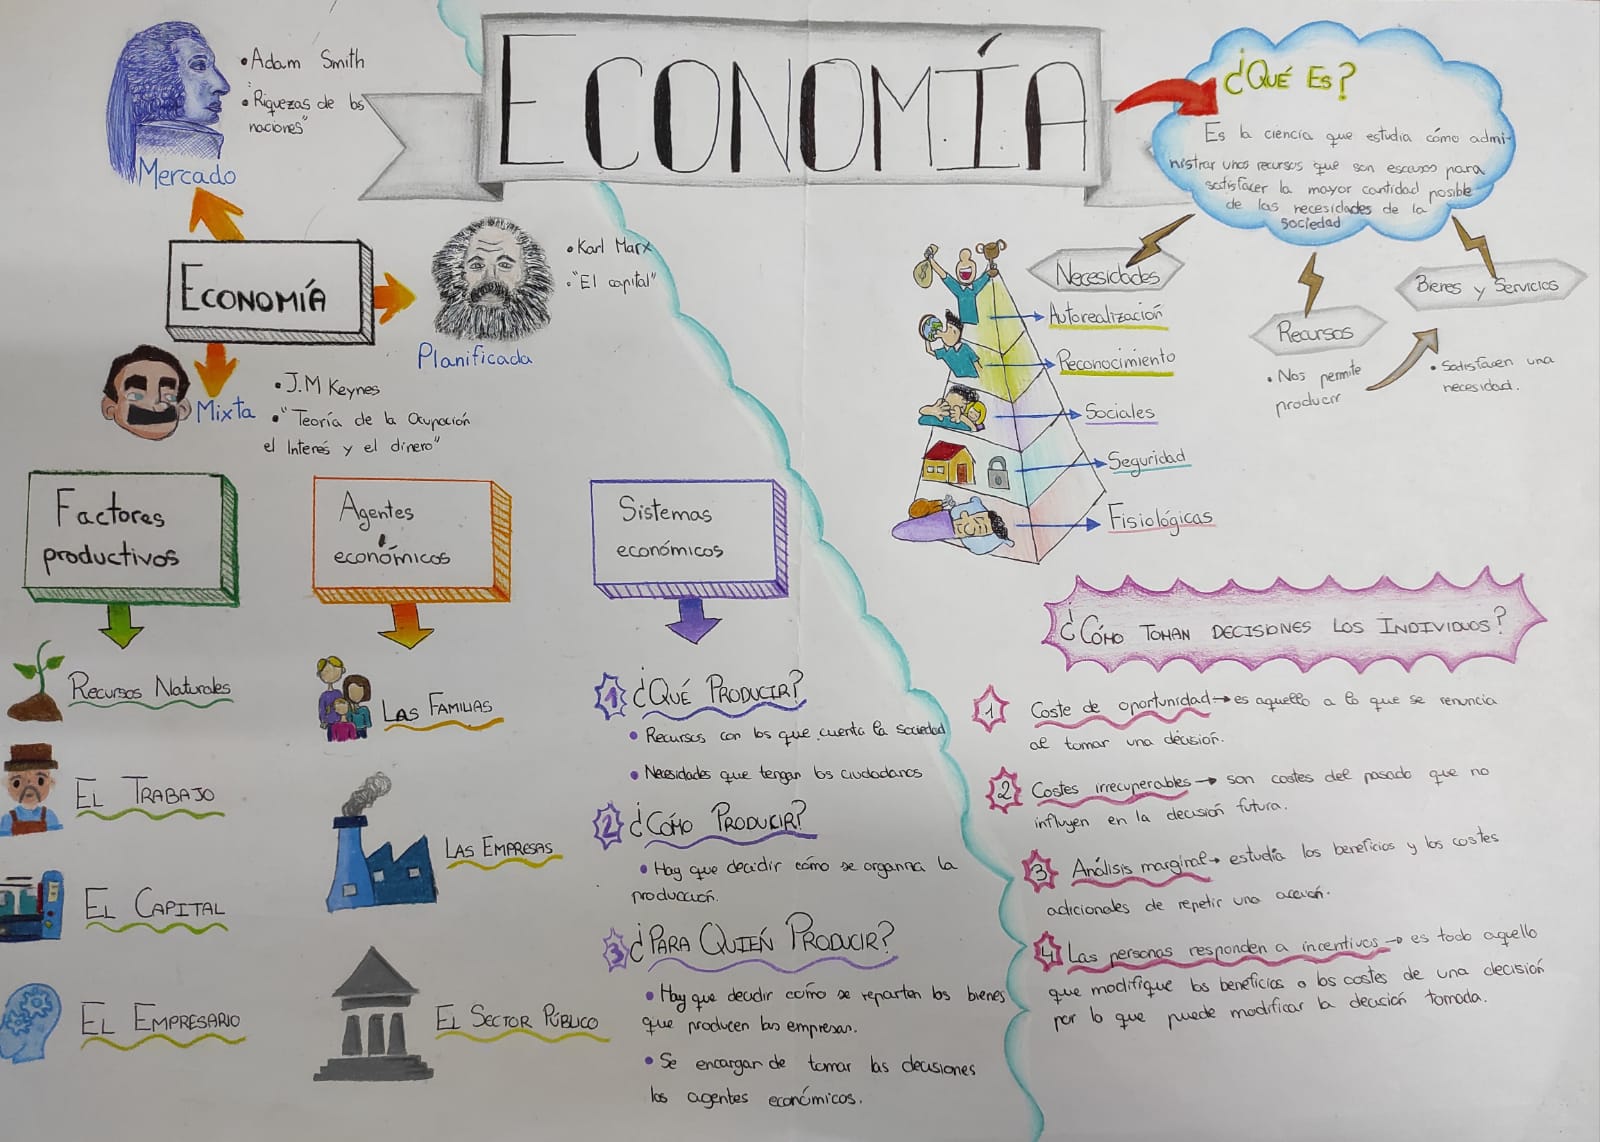 ECONOMÍA
• Adam Smith
• "Riquezas de los
naciones"
Mercado
ECONOMÍA
• Karl Marx
• "El capital"
Planificada
Mixta
• J.M Keynes
• "Teoría de la Ocupación
el Interés y el dinero"
¿QUÉ ES?
Es la ciencia que estudia cómo admi-
nistrar unos recursos que son escasos para
satisfacer la mayor cantidad posible
de las necesidades de la
sociedad
Necesidades
Recursos
• Nos permite
producir
Bienes y Servicios
• Satisfacen una
necesidad.
Autorealización
Reconocimiento
Sociales
Seguridad
Fisiológicas
Factores
productivos
RECURSOS NATURALES
EL TRABAJO
EL CAPITAL
EL EMPRESARIO
Agentes
económicos
LAS FAMILIAS
LAS EMPRESAS
EL SECTOR PÚBLICO
Sistemas
económicos
1 ¿QUÉ PRODUCIR?
• Recursos con los que cuenta la sociedad
• Necesidades que tengan los ciudadanos
2 ¿CÓMO PRODUCIR?
• Hay que decidir cómo se organiza la
producción.
3 ¿PARA QUIÉN PRODUCIR?
• Hay que decidir cómo se reparten los bienes
que producen las empresas.
• Se encargan de tomar las decisiones
los agentes económicos.
¿CÓMO TOMAN DECISIONES LOS INDIVIDUOS?
1 Coste de oportunidad → es aquello a lo que se renuncia
al tomar una decisión.
2 Costes irrecuperables → son costes del pasado que no
influyen en la decisión futura.
3 Análisis marginal → estudia los beneficios y los costes
adicionales de repetir una acción.
4 Las personas responden a incentivos → es todo aquello
que modifique los beneficios o los costes de una decisión
por lo que puede modificar la decisión tomada.